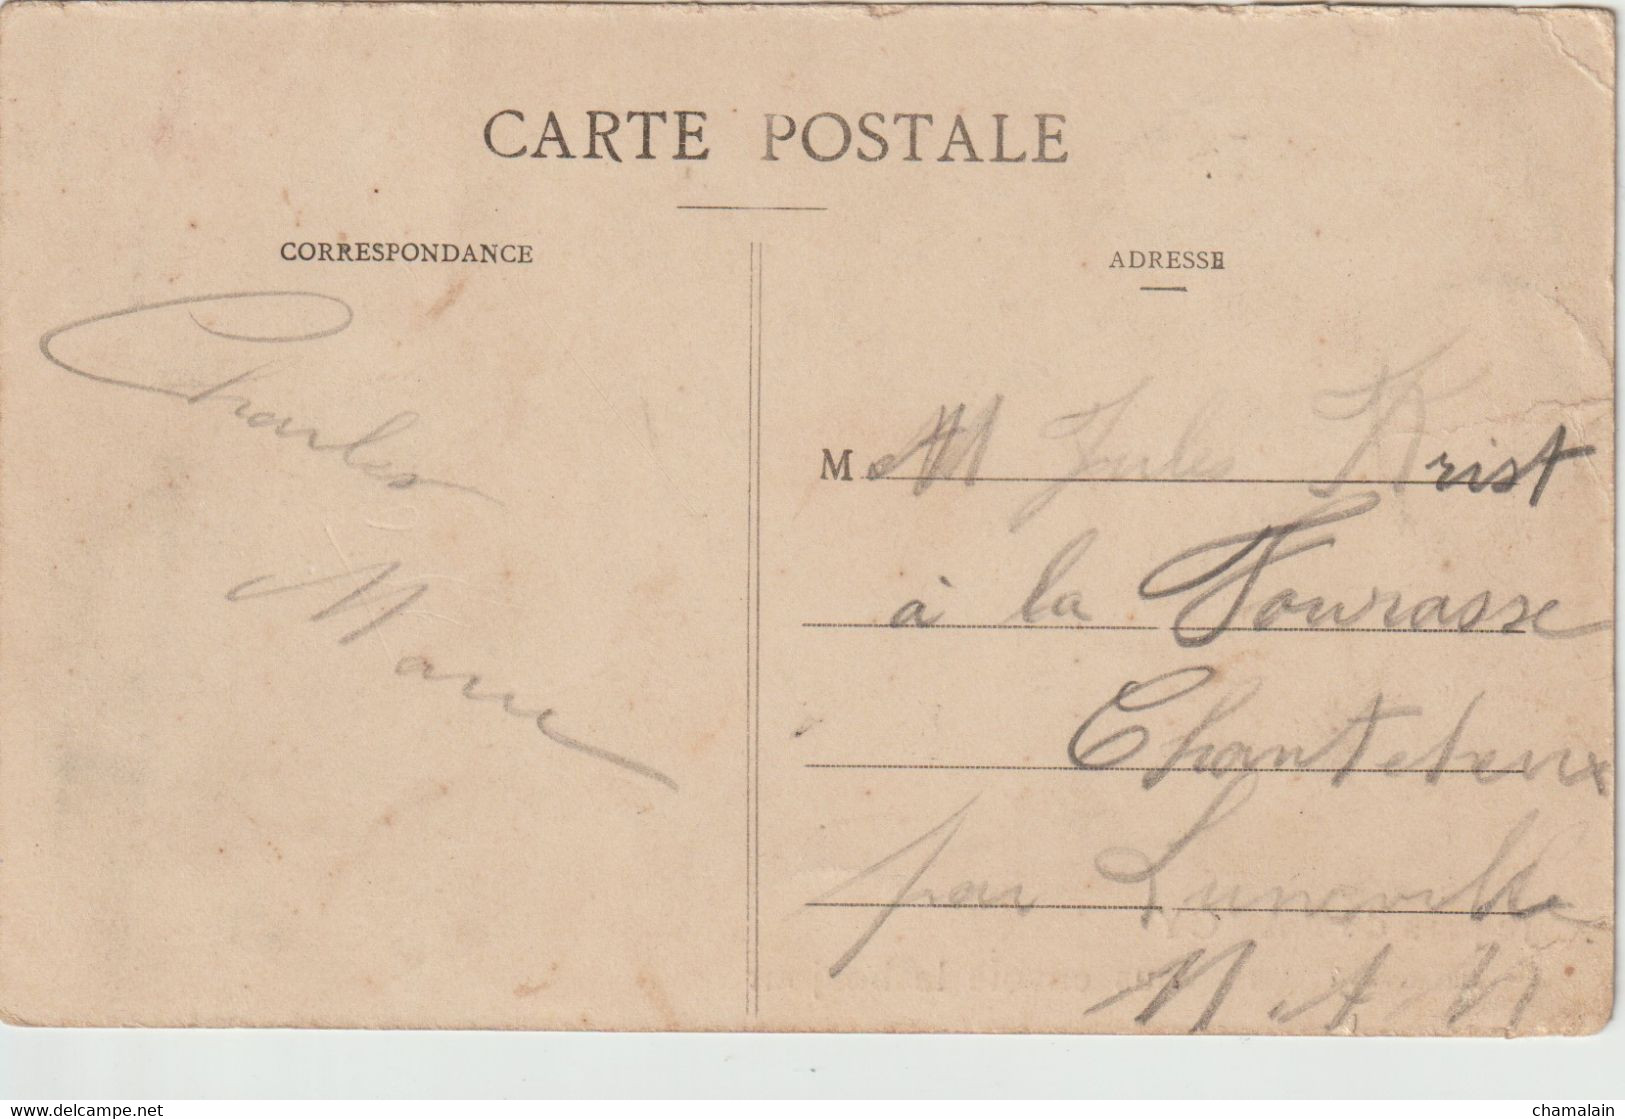 CARTE POSTALE
CORRESPONDANCE
ADRESSE
Charles
M M Jules Krist
à la Fourasse
Chanteheux
par Luneville
M et M
www.delcampe.net
chamalain